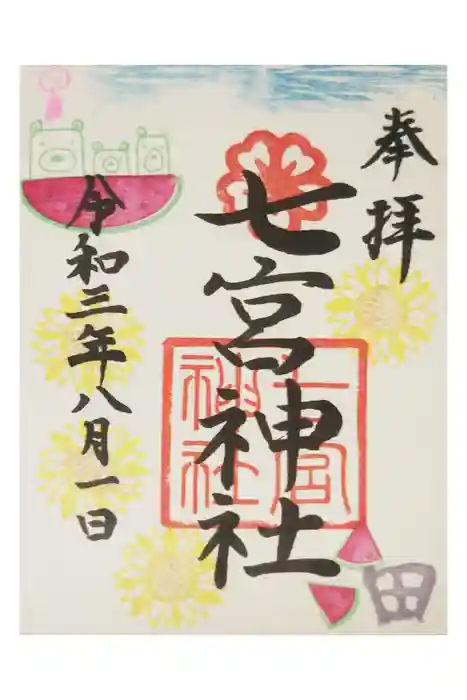 奉拝
七宮神社
七宮
神社
令和三年八月一日
田